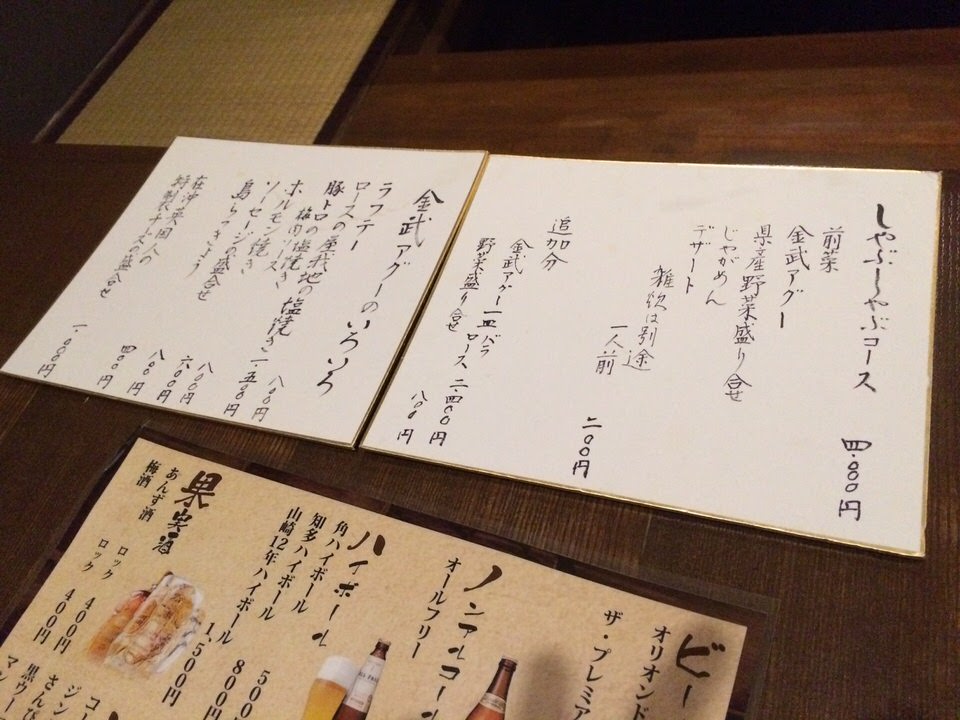 しゃぶしゃぶコース 四.000円
前菜
金武アグー
県産野菜盛り合せ
じゃがめん
デザート
雑炊は別途
一人前 二00円
追加分
金武アグー 一皿 バラ
ロース 二.四00円
野菜盛り合せ 八00円
金武アグーのいろいろ
ラフテー 八00円
ロースの
豚トロの
塩焼き 一.五00円
梅肉ソース
ホルモン焼き 八00円
ソーセージの盛合せ 六00円
島らっきょう 八00円
四00円
在沖英国人の
特製チーズの盛合せ 一.000円
ビー
オリオンド
ザ・プレミア
ノンアルコー
オールフリー
ハイボール
角ハイボール 500
知多ハイボール 800円
山崎12年ハイボール 1,500円
果実酒
あんず酒 ロック 400円
梅酒 ロック 400円
コー
ジン
さんぴ
黒ウー
マン